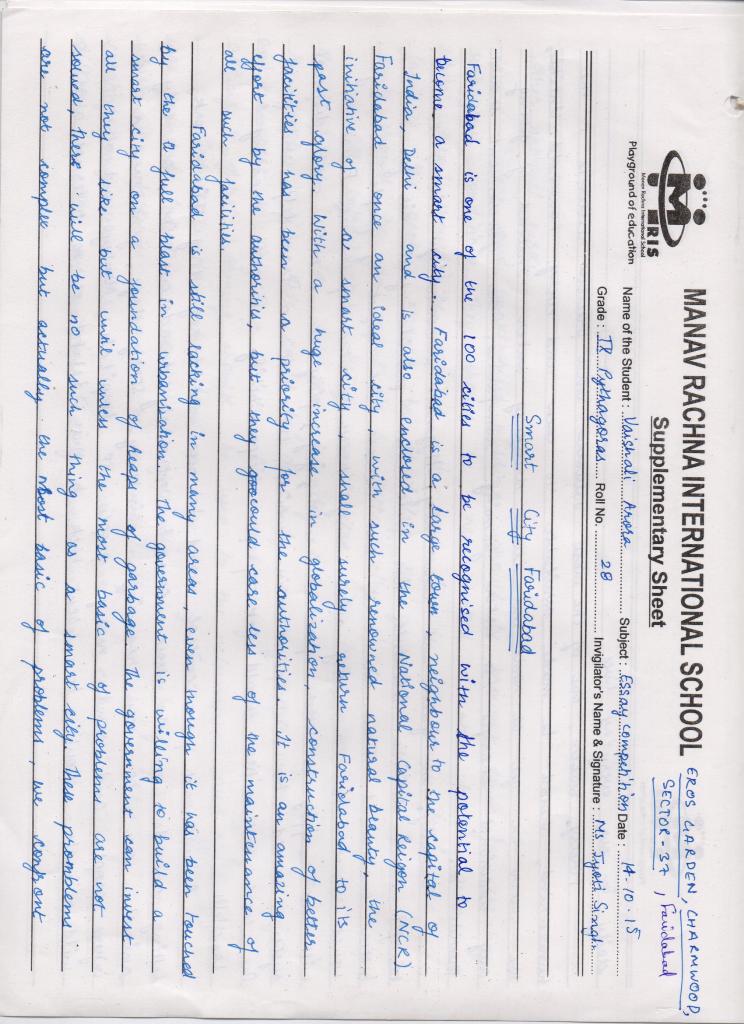 MANAV RACHNA INTERNATIONAL SCHOOL
EROS GARDEN, CHARMWOOD,
SECTOR-37, Faridabad
Supplementary Sheet
MRIS
Manav Rachna International School
Playground of education
Name of the Student : Vaishali Arora Subject : Essay competition Date : 14.10.15
Grade : IX Pythagoras Roll No. 28 Invigilator's Name & Signature : Ms Jyoti Singh
Smart City Faridabad
Faridabad is one of the 100 cities to be recognised with the potential to
become a smart city. Faridabad is a large town, neighbour to the capital of
India, Delhi and is also enclosed in the National Capital Reigon (NCR)
Faridabad once an ideal city, with such renowned natural beauty, the
initiative of a smart city, shall surely return Faridabad to its
past glory. With a huge increase in globalization, construction of better
facilities has been a priority for the authorities. It is an amazing
effort by the authorities, but they could care less of the maintenance of
all such facilities.
Faridabad is still lacking in many areas, even though it has been touched
by the full blast in urbanisation. The government is willing to build a
smart city on a foundation of heaps of garbage. The government can invest
all they like but until unless the most basic of problems are not
solved, there will be no such thing as a smart city. These promblems
are not complex but actually the most basic of problems, we confront